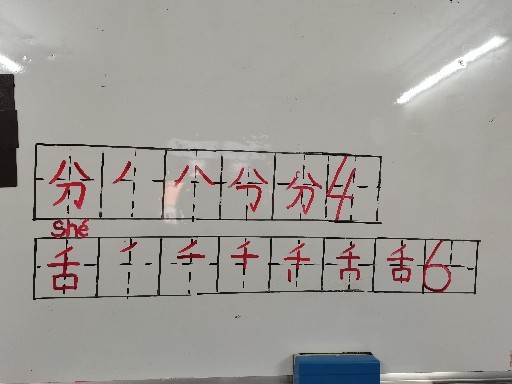 分 丿 八 分 分 4
shé
舌 一 二 千 千 舌 舌 6